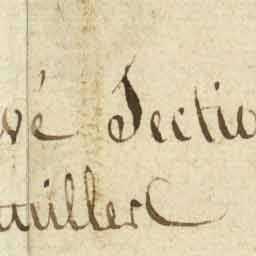 vé Sectio
uillerC